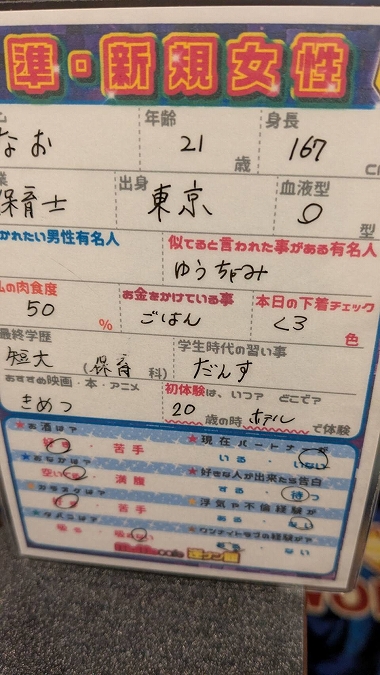 準・新規女性
なお
年齢 21 歳
身長 167
保育士
出身 東京
血液型 O 型
かれたい男性有名人
似てると言われた事がある有名人 ゆうちゃみ
の肉食度 50 %
お金をかけている事 ごはん
本日の下着チェック くろ 色
最終学歴 短大 (保育 科)
学生時代の習い事 だんす
おすすめ映画・本・アニメ きめつ
初体験は、いつ? どこで?
20 歳の時 ホテル で体験
お酒は? 好き 苦手
現在パートナーが いる・いない
おなかは? 空いてる 満腹
好きな人が出来たら告白 する 待つ
カラオケは? 苦手
浮気や不倫経験が ある
タバコは? 吸う 吸わない
ワンナイトラブの経験が ない